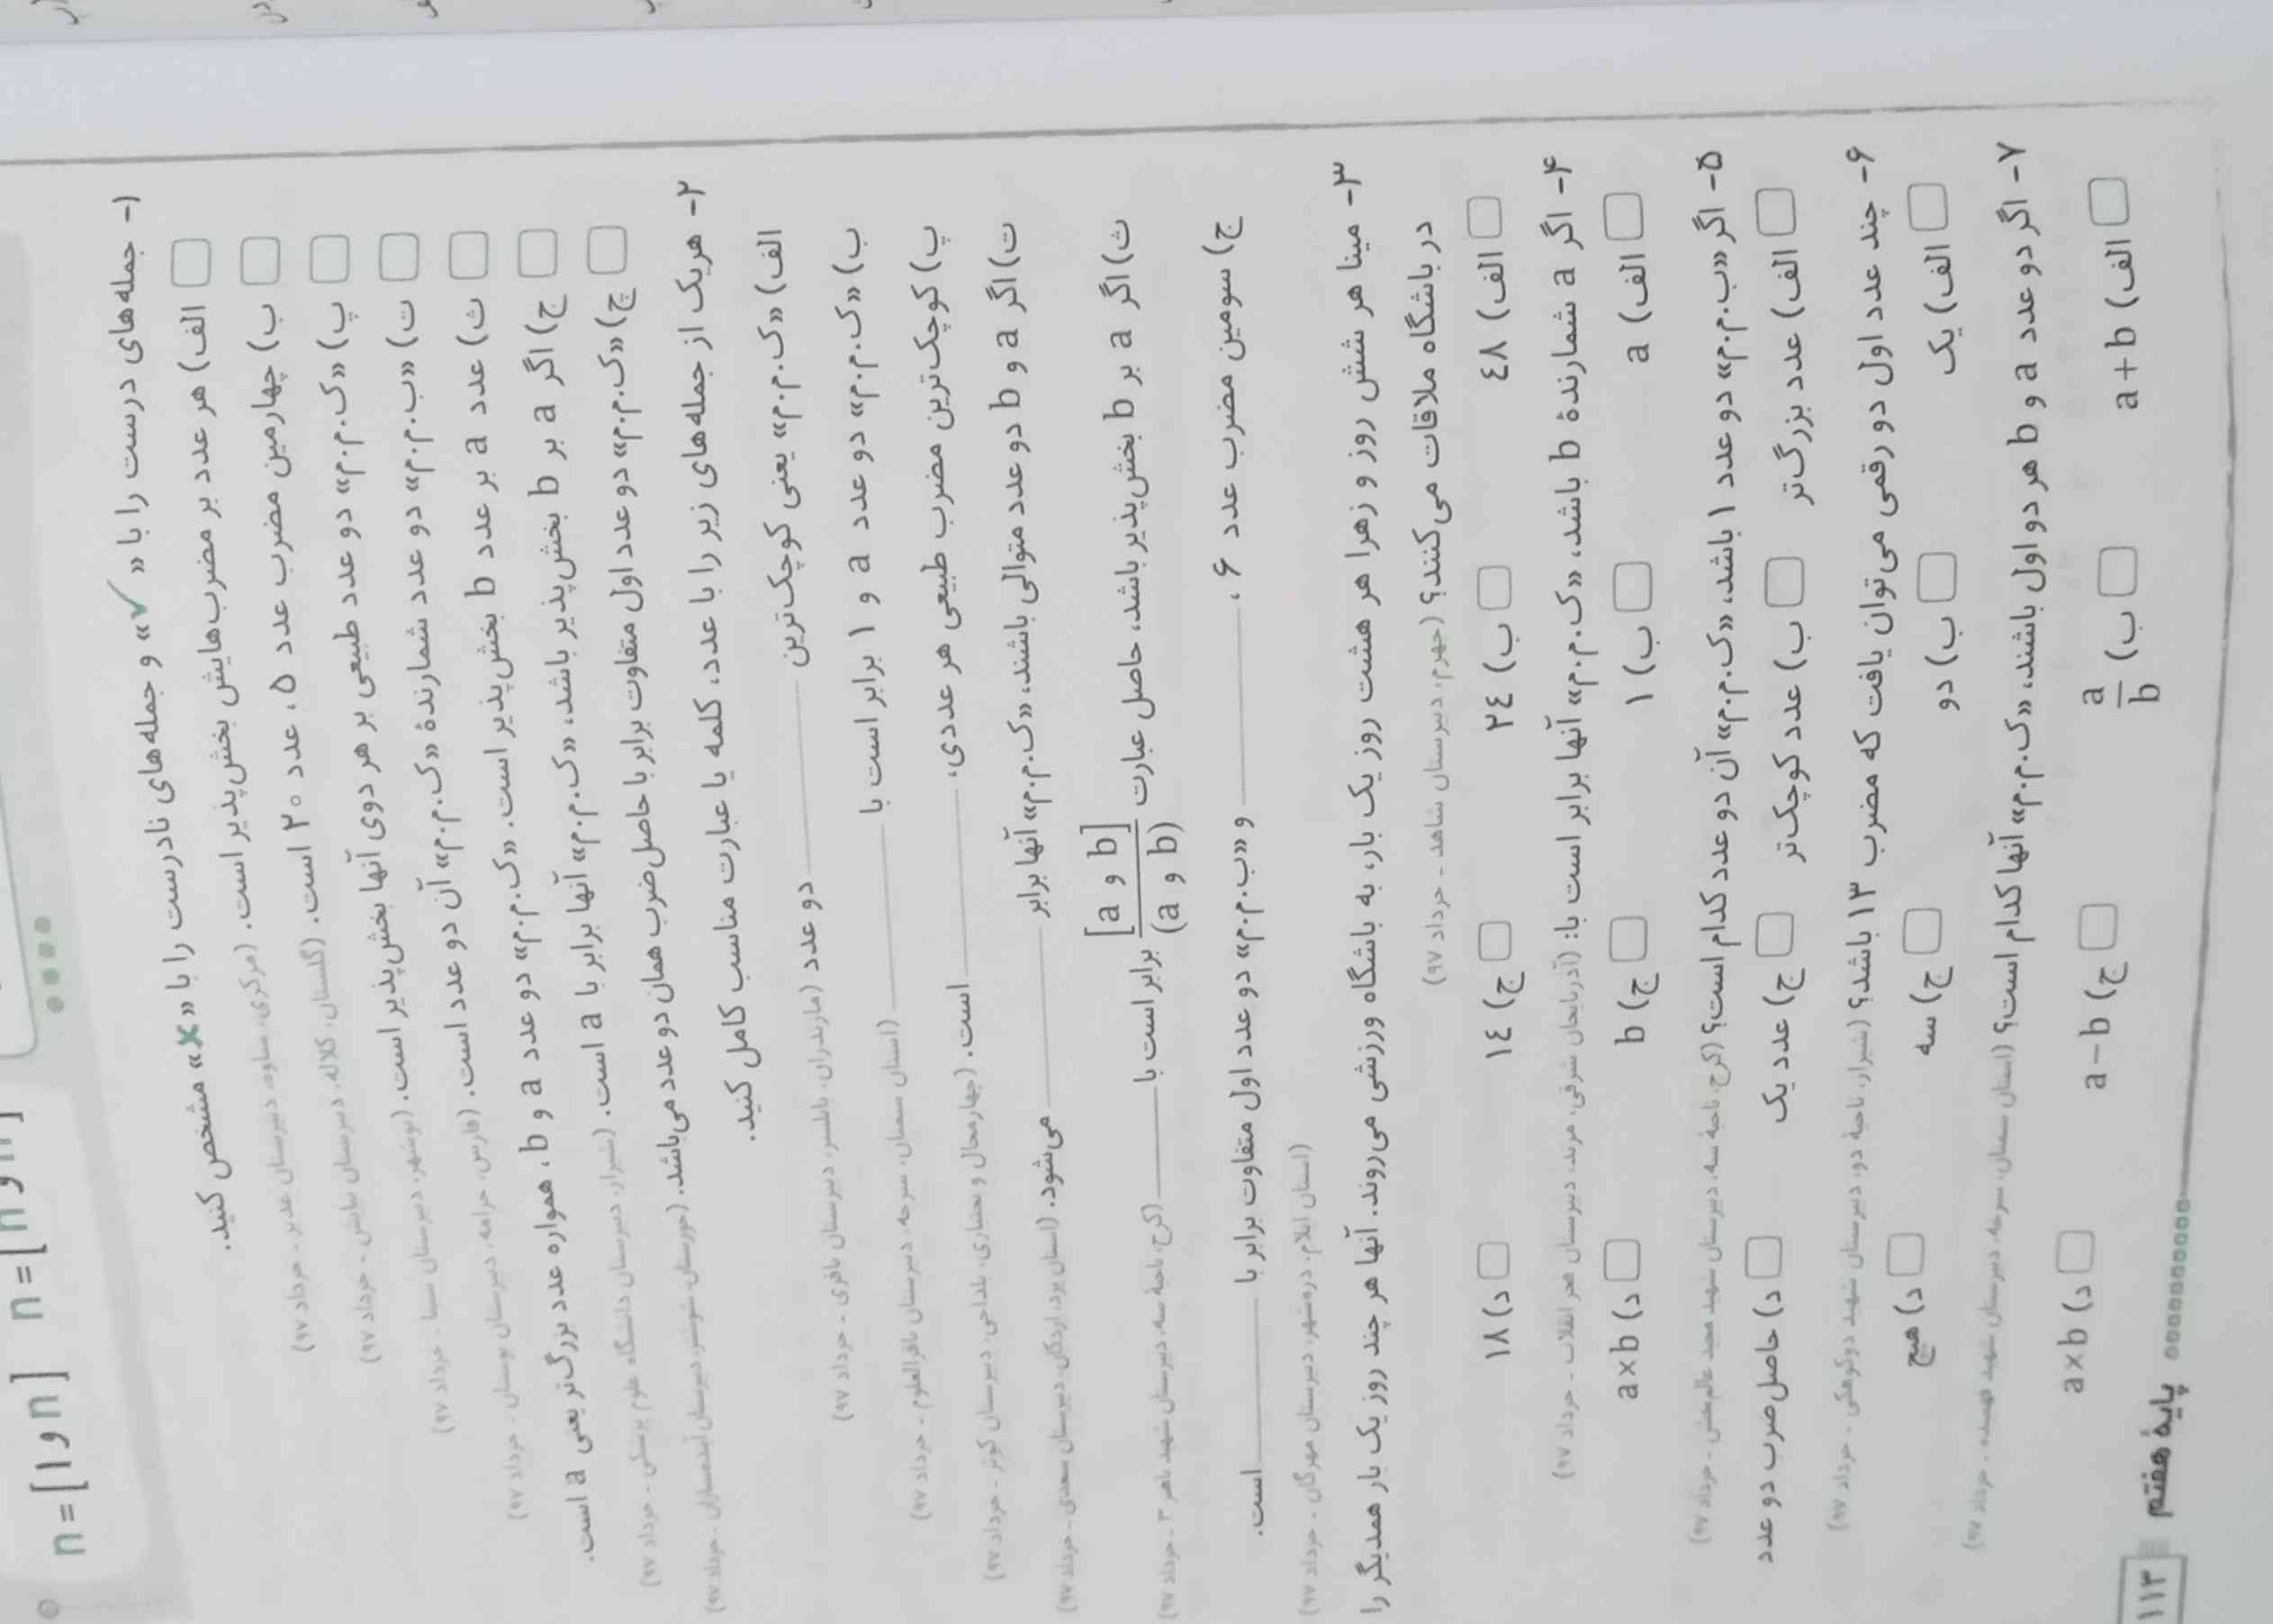 n=[n و ۱] n=[n و n]
۱- جمله‌های درست را با «✓» و جمله‌های نادرست را با «✗» مشخص کنید.
الف) هر عدد بر مضرب‌هایش بخش‌پذیر است. (مرکزی، ساوه، دبیرستان غدیر - خرداد ۹۷)
ب) چهارمین مضرب عدد ۵، عدد ۲۰ است. (گلستان، کلاله، دبیرستان نیایش - خرداد ۹۷)
پ) «ک.م.م» دو عدد طبیعی بر هر دوی آنها بخش‌پذیر است. (بوشهر، دبیرستان سینا - خرداد ۹۷)
ت) «ب.م.م» دو عدد شمارندهٔ «ک.م.م» آن دو عدد است. (فارس، خرامه، دبیرستان بوستان - خرداد ۹۷)
ث) عدد a بر عدد b بخش‌پذیر است. «ک.م.م» دو عدد a و b، همواره عدد بزرگ‌تر یعنی a است.
ج) اگر a بر b بخش‌پذیر باشد، «ک.م.م» آنها برابر با a است. (شیراز، دبیرستان دانشگاه علوم پزشکی - خرداد ۹۷)
چ) «ک.م.م» دو عدد اول متفاوت برابر با حاصل‌ضرب همان دو عدد می‌باشد. (خوزستان، شوشتر، دبیرستان آینده‌سازان - خرداد ۹۷)
۲- هریک از جمله‌های زیر را با عدد، کلمه یا عبارت مناسب کامل کنید.
الف) «ک.م.م» یعنی کوچک‌ترین دو عدد (مازندران، بابلسر، دبیرستان باقری - خرداد ۹۷)
ب) «ک.م.م» دو عدد a و ۱ برابر است با (استان سمنان، سرخه، دبیرستان باقرالعلوم - خرداد ۹۷)
پ) کوچک‌ترین مضرب طبیعی هر عددی، است. (چهارمحال و بختیاری، بلداجی، دبیرستان کوثر - خرداد ۹۷)
ت) اگر a و b دو عدد متوالی باشند، «ک.م.م» آنها برابر می‌شود. (استان یزد، اردکان، دبیرستان سعدی - خرداد ۹۷)
ث) اگر a بر b بخش‌پذیر باشد، حاصل عبارت [a و b]/(a و b) برابر است با (کرج، ناحیهٔ سه، دبیرستان شهید باهنر ۳ - خرداد ۹۷)
ج) سومین مضرب عدد ۶، و «ب.م.م» دو عدد اول متفاوت برابر با است.
(استان ایلام، دره‌شهر، دبیرستان مهرگان - خرداد ۹۷)
۳- مینا هر شش روز و زهرا هر هشت روز یک بار، به باشگاه ورزشی می‌روند. آنها هر چند روز یک بار همدیگر را
در باشگاه ملاقات می‌کنند؟ (جهرم، دبیرستان شاهد - خرداد ۹۷)
الف) ٤٨ ب) ٢٤ ج) ١٤ د) ١٨
۴- اگر a شمارندهٔ b باشد، «ک.م.م» آنها برابر است با: (آذربایجان شرقی، مرند، دبیرستان فجر انقلاب - خرداد ۹۷)
الف) a ب) ۱ ج) b د) a×b
۵- اگر «ب.م.م» دو عدد ۱ باشد، «ک.م.م» آن دو عدد کدام است؟ (کرج، ناحیهٔ سه، دبیرستان شهید مجید عالم‌بخش - خرداد ۹۷)
الف) عدد بزرگ‌تر ب) عدد کوچک‌تر ج) عدد یک د) حاصل‌ضرب دو عدد
۶- چند عدد اول دو رقمی می‌توان یافت که مضرب ۱۳ باشد؟ (شیراز، ناحیهٔ دو، دبیرستان شهید دوکوهکی - خرداد ۹۷)
الف) یک ب) دو ج) سه د) هیچ
۷- اگر دو عدد a و b هر دو اول باشند، «ک.م.م» آنها کدام است؟ (استان سمنان، سرخه، دبیرستان شهید فهمیده - خرداد ۹۷)
الف) a+b ب) a/b ج) a−b د) a×b
۱۱۳ پایهٔ هفتم